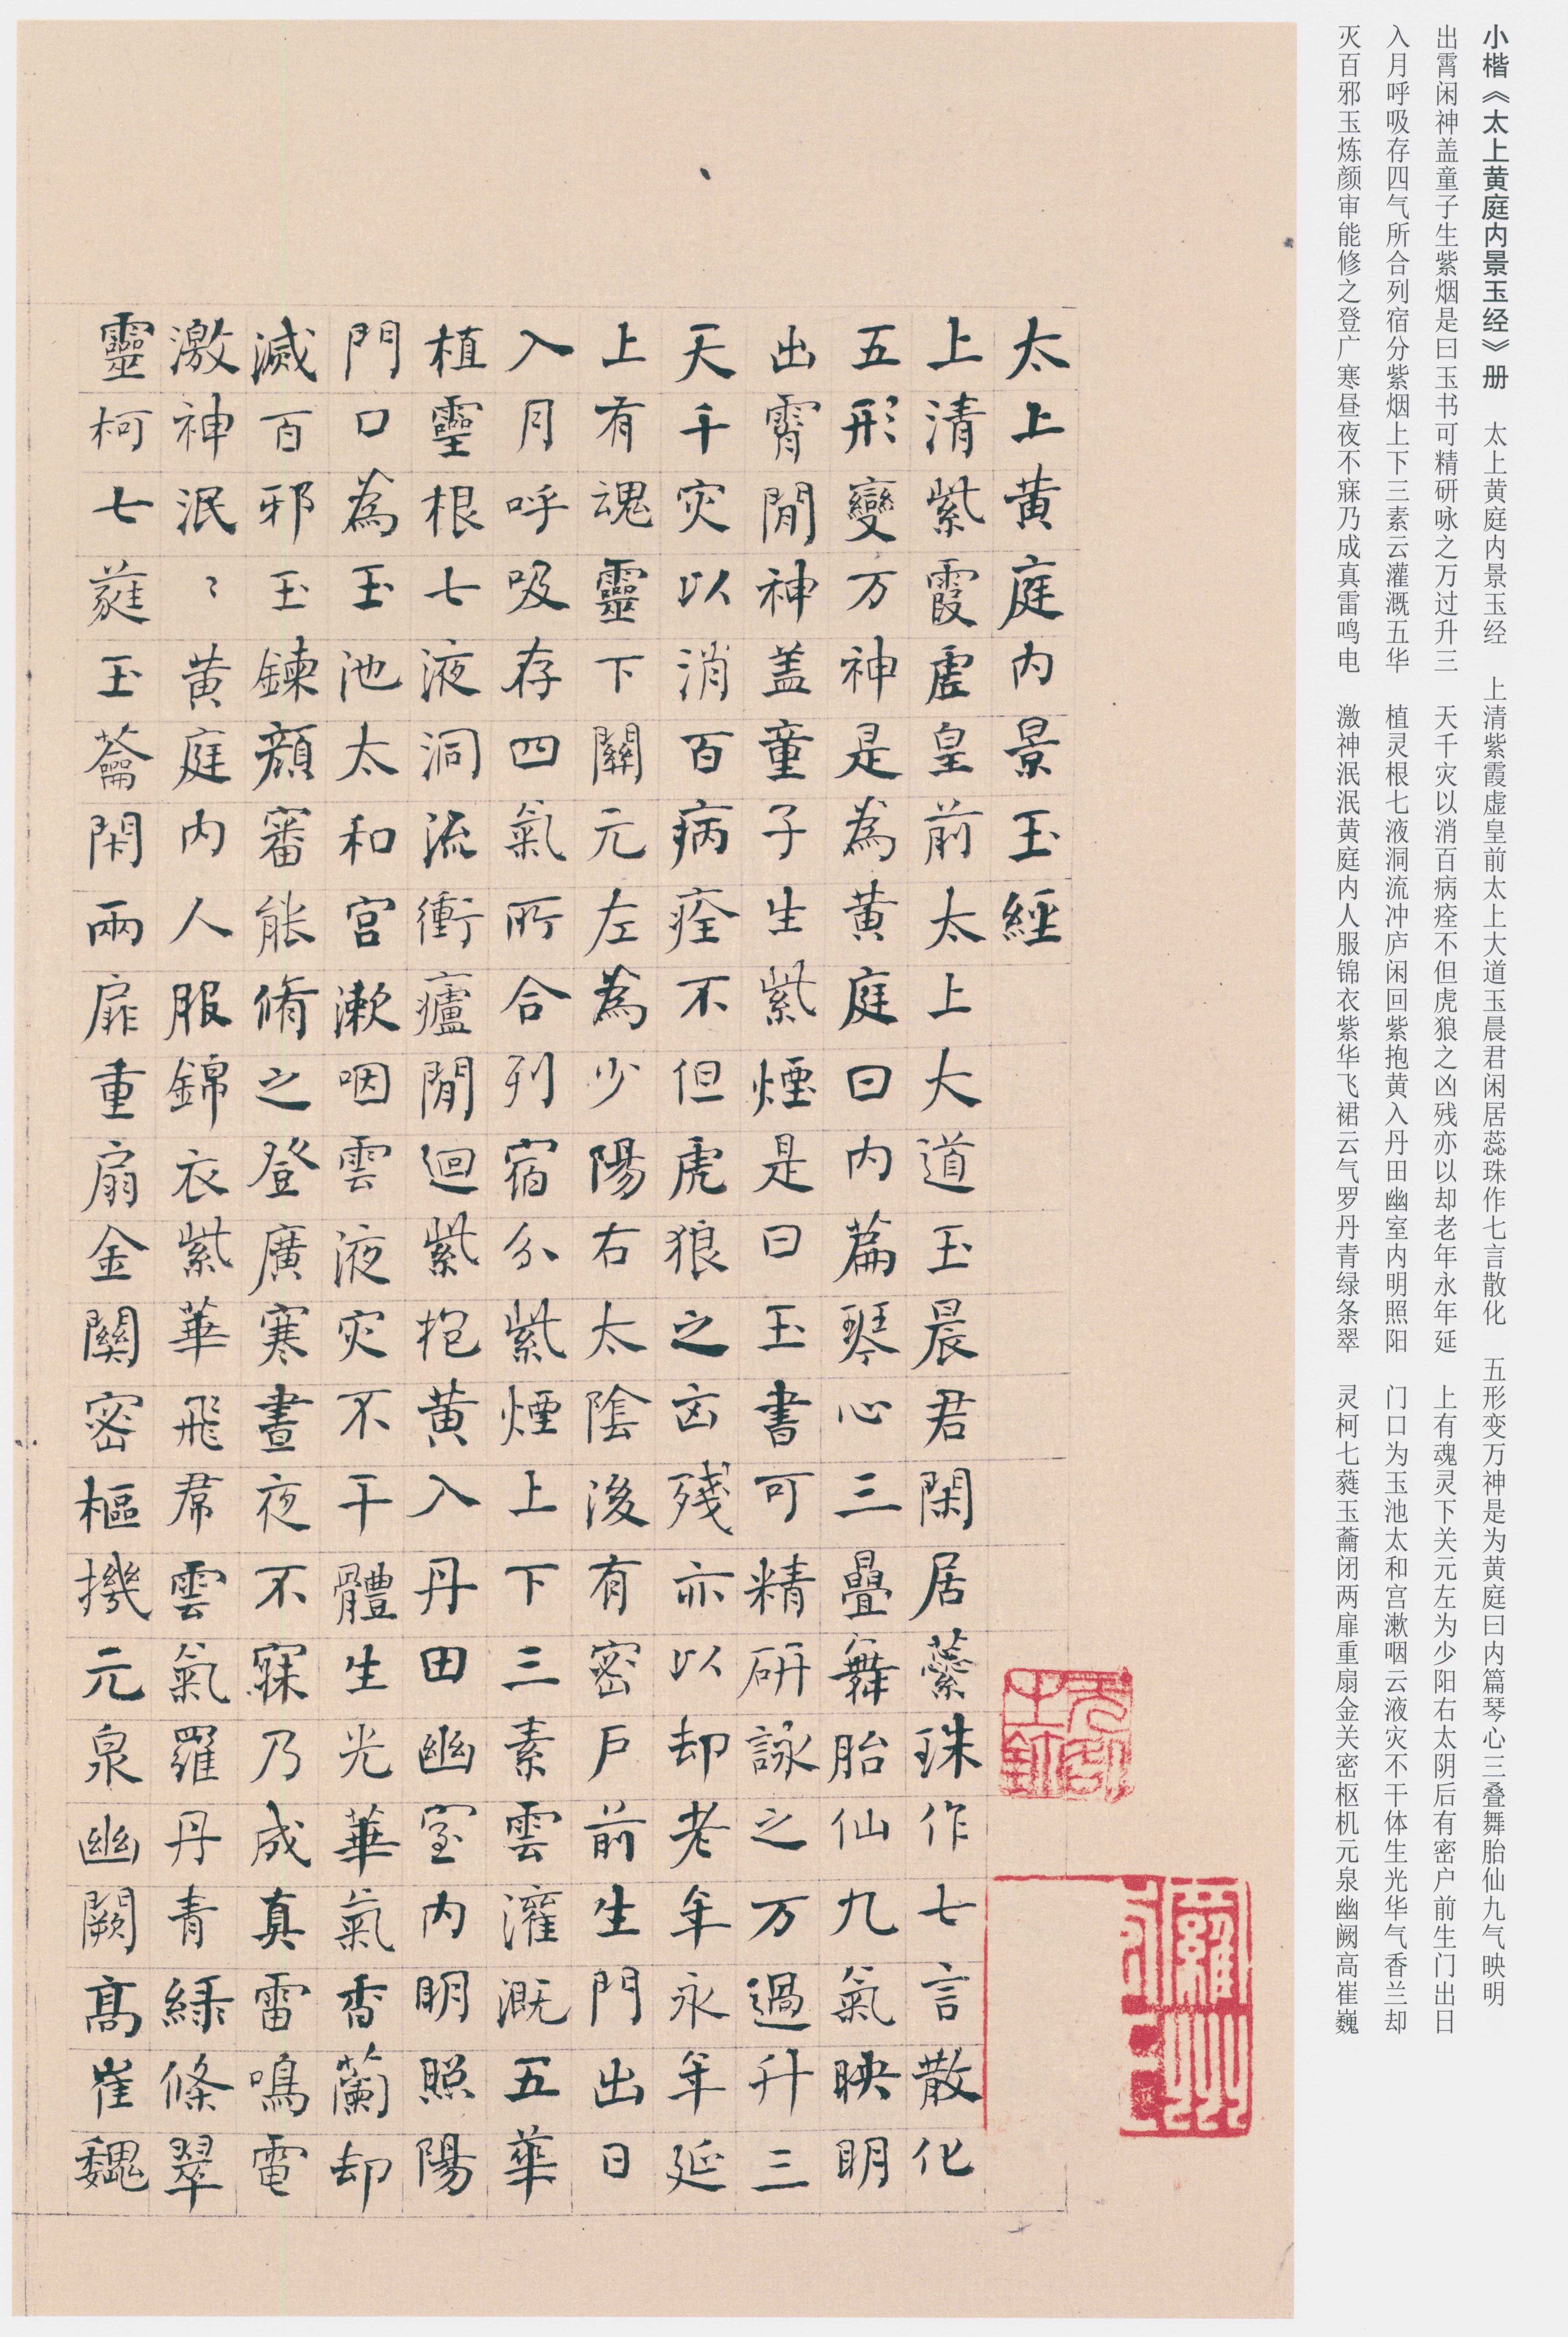 小楷《太上黄庭内景玉经》册　太上黄庭内景玉经　上清紫霞虚皇前太上大道玉晨君闲居蕊珠作七言散化　五形变万神是为黄庭曰内篇琴心三叠舞胎仙九气映明
出霄闲神盖童子生紫烟是曰玉书可精研咏之万过升三　天千灾以消百病痊不但虎狼之凶残亦以却老年永年延　上有魂灵下关元左为少阳右太阴后有密户前生门出日
入月呼吸存四气所合列宿分紫烟上下三素云灌溉五华　植灵根七液洞流冲庐闲回紫抱黄入丹田幽室内明照阳　门口为玉池太和宫漱咽云液灾不干体生光华气香兰却
灭百邪玉炼颜审能修之登广寒昼夜不寐乃成真雷鸣电　激神泯泯黄庭内人服锦衣紫华飞裙云气罗丹青绿条翠　灵柯七蕤玉蘥闭两扉重扇金关密枢机元泉幽阙高崔巍
太上黄庭内景玉經
上清紫霞虚皇前太上大道玉晨君閑居蘂珠作七言散化
五形變万神是為黄庭曰内篇琴心三疊舞胎仙九氣映明
出霄閒神盖童子生紫煙是曰玉書可精研詠之万過升三
天千灾以消百病痊不但虎狼之凶殘亦以却老年永年延
上有魂靈下關元左為少陽右太陰後有密戶前生門出日
入月呼吸存四氣所合列宿分紫煙上下三素雲灌溉五華
植靈根七液洞流衝廬閒迴紫抱黄入丹田幽室内明照陽
門口為玉池太和宫漱咽雲液灾不干體生光華氣香蘭却
滅百邪玉鍊顏審能脩之登廣寒晝夜不寐乃成真雷鳴電
激神泯〻黄庭内人服錦衣紫華飛帬雲氣羅丹青緑條翠
靈柯七蕤玉蘥閇兩扉重扇金關密樞機元泉幽闕髙崔巍